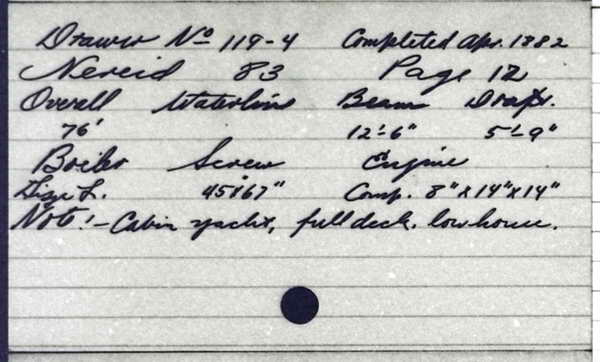 Drawer No 119-4 Completed Apr. 1882
Nereid 83 Page 12
Overall Waterline Beam Draft.
76' 12'-6" 5'-9"
Boiler Screw Engine
Size F. 45x67" Comp. 8"x14"x14"
Note:- Cabin yacht, full deck, low house.